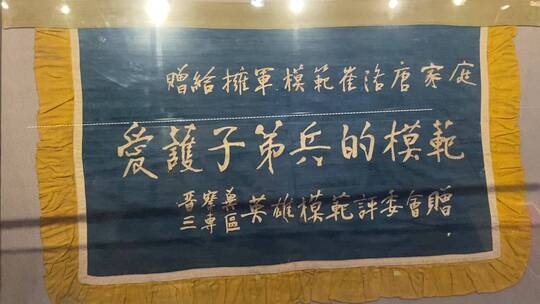 贈給擁軍模範崔洛唐家庭
愛護子第兵的模範
晋察冀三專區英雄模範評委會贈